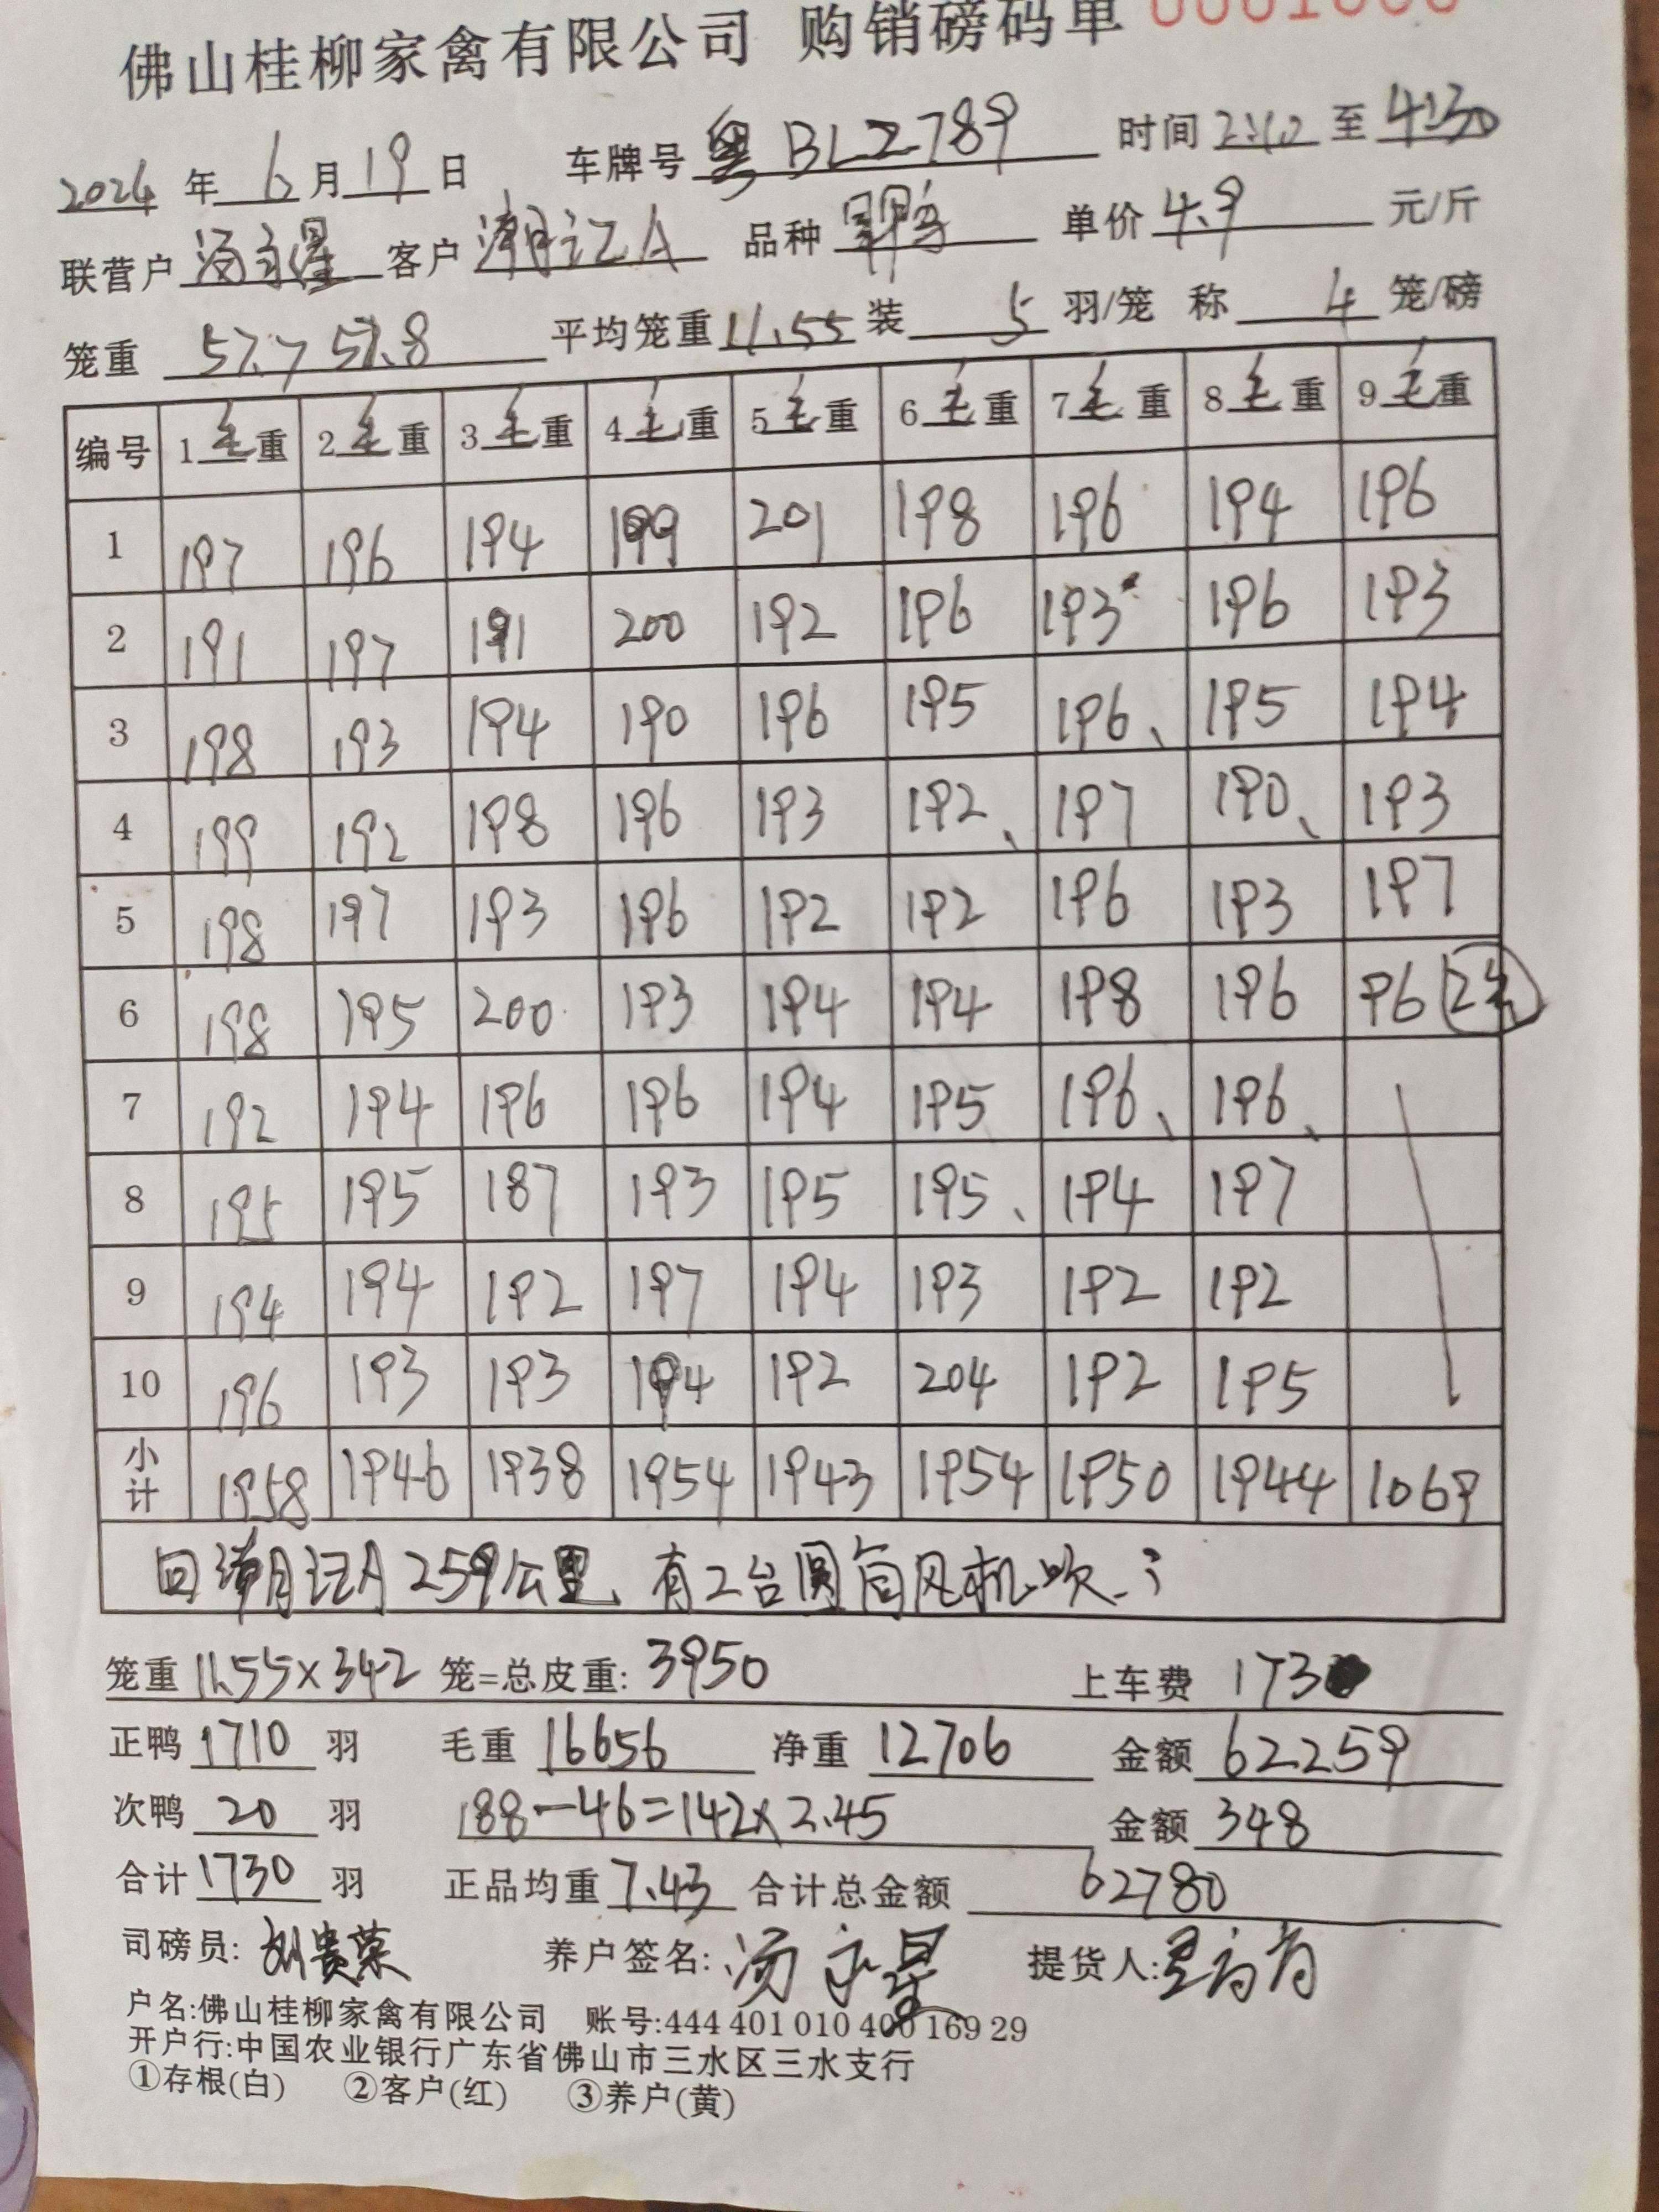 佛山桂柳家禽有限公司 购销磅码单
2024 年 6 月 19 日 车牌号 粤BLZ789 时间 2:12 至 4:30
联营户 汤永星 客户 潮记A 品种 单价 4.9 元/斤
笼重 57.7 57.8 平均笼重 11.55 装 5 羽/笼 称 4 笼/磅
编号 1毛重 2毛重 3毛重 4毛重 5毛重 6毛重 7毛重 8毛重 9毛重
1 197 196 194 199 201 198 196 194 196
2 191 197 191 200 192 196 193 196 193
3 198 193 194 190 196 195 196、 195 194
4 199 192 198 196 193 192、 197 190、 193
5 198 197 193 196 192 192 196 193 197
6 198 195 200 193 194 194 198 196 96 2笼
7 192 194 196 196 194 195 196、 196、
8 195 195 187 193 195 195、 194 197
9 194 194 192 197 194 193 192 192
10 196 193 193 194 192 204 192 195
小计 1958 1946 1938 1954 1943 1954 1950 1944 1069
回潮记A 259公里 有2台圆筒风机吹.
笼重 11.55×342 笼=总皮重: 3950 上车费 173
正鸭 1710 羽 毛重 16656 净重 12706 金额 62259
次鸭 20 羽 188-46=142×2.45 金额 348
合计 1730 羽 正品均重 7.43 合计总金额 62780
司磅员: 刘贵荣 养户签名: 汤永星 提货人:
户名:佛山桂柳家禽有限公司 账号:444 401 010 400 169 29
开户行:中国农业银行广东省佛山市三水区三水支行
①存根(白) ②客户(红) ③养户(黄)